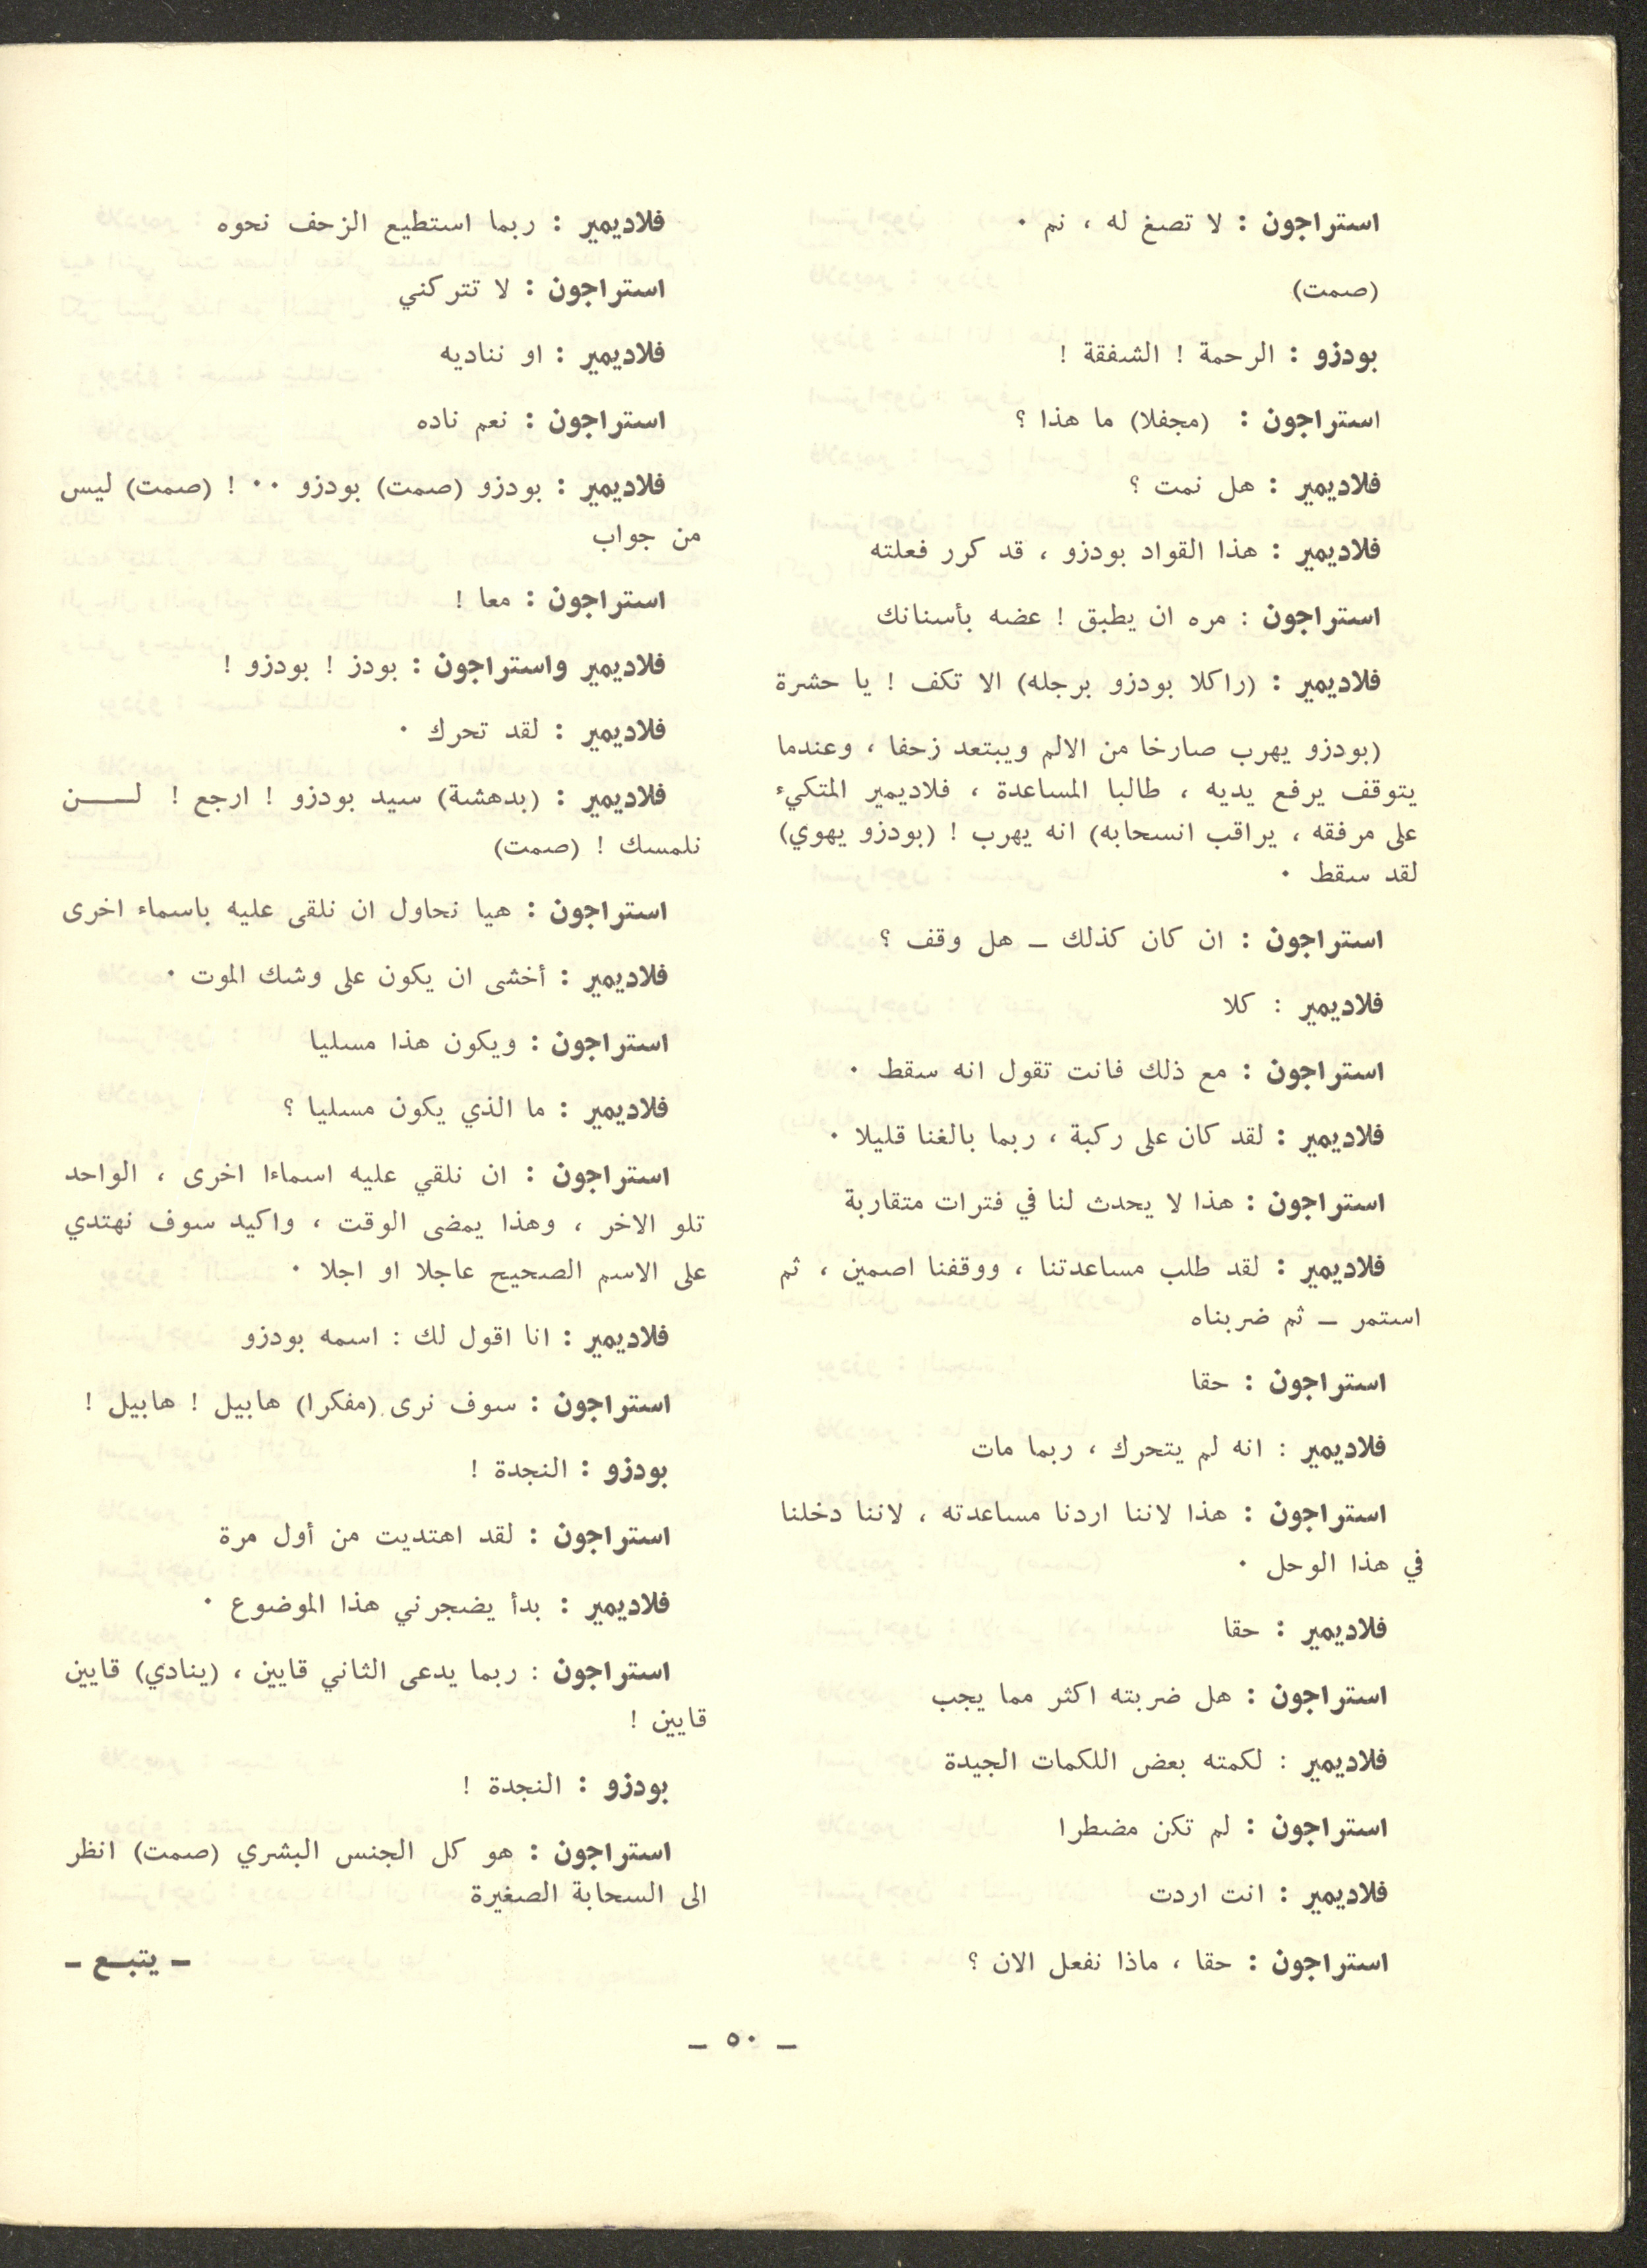 استراجون : لا تصغ له ، نم ٠
(صمت)
بودزو : الرحمة ! الشفقة !
استراجون : (مجفلا) ما هذا ؟
فلاديمير : هل نمت ؟
فلاديمير : هذا القواد بودزو ، قد كرر فعلته
استراجون : مره ان يطبق ! عضه بأسنانك
فلاديمير : (راكلا بودزو برجله) الا تكف ! يا حشرة
(بودزو يهرب صارخا من الالم ويبتعد زحفا ، وعندما
يتوقف يرفع يديه ، طالبا المساعدة ، فلاديمير المتكيء
على مرفقه ، يراقب انسحابه) انه يهرب ! (بودزو يهوي)
لقد سقط ٠
استراجون : ان كان كذلك ــ هل وقف ؟
فلاديمير : كلا
استراجون : مع ذلك فانت تقول انه سقط ٠
فلاديمير : لقد كان على ركبة ، ربما بالغنا قليلا ٠
استراجون : هذا لا يحدث لنا في فترات متقاربة
فلاديمير : لقد طلب مساعدتنا ، ووقفنا اصمين ، ثم
استمر ــ ثم ضربناه
استراجون : حقا
فلاديمير : انه لم يتحرك ، ربما مات
استراجون : هذا لاننا اردنا مساعدته ، لاننا دخلنا
في هذا الوحل ٠
فلاديمير : حقا
استراجون : هل ضربته اكثر مما يجب
فلاديمير : لكمته بعض اللكمات الجيدة
استراجون : لم تكن مضطرا
فلاديمير : انت اردت
استراجون : حقا ، ماذا نفعل الان ؟
فلاديمير : ربما استطيع الزحف نحوه
استراجون : لا تتركني
فلاديمير : او نناديه
استراجون : نعم ناده
فلاديمير : بودزو (صمت) بودزو ٠٠ ! (صمت) ليس
من جواب
استراجون : معا !
فلاديمير واستراجون : بودز ! بودزو !
فلاديمير : لقد تحرك ٠
فلاديمير : (بدهشة) سيد بودزو ! ارجع ! لـــن
نلمسك ! (صمت)
استراجون : هيا نحاول ان نلقى عليه باسماء اخرى
فلاديمير : أخشى ان يكون على وشك الموت ٠
استراجون : ويكون هذا مسليا
فلاديمير : ما الذي يكون مسليا ؟
استراجون : ان نلقي عليه اسماءا اخرى ، الواحد
تلو الاخر ، وهذا يمضى الوقت ، واكيد سوف نهتدي
على الاسم الصحيح عاجلا او اجلا ٠
فلاديمير : انا اقول لك : اسمه بودزو
استراجون : سوف نرى (مفكرا) هابيل ! هابيل !
بودزو : النجدة !
استراجون : لقد اهتديت من أول مرة
فلاديمير : بدأ يضجرني هذا الموضوع ٠
استراجون : ربما يدعى الثاني قايين ، (ينادي) قايين
قايين !
بودزو : النجدة !
استراجون : هو كل الجنس البشري (صمت) انظر
الى السحابة الصغيرة
ــ يتبــع ــ
ــ ٥٠ ــ